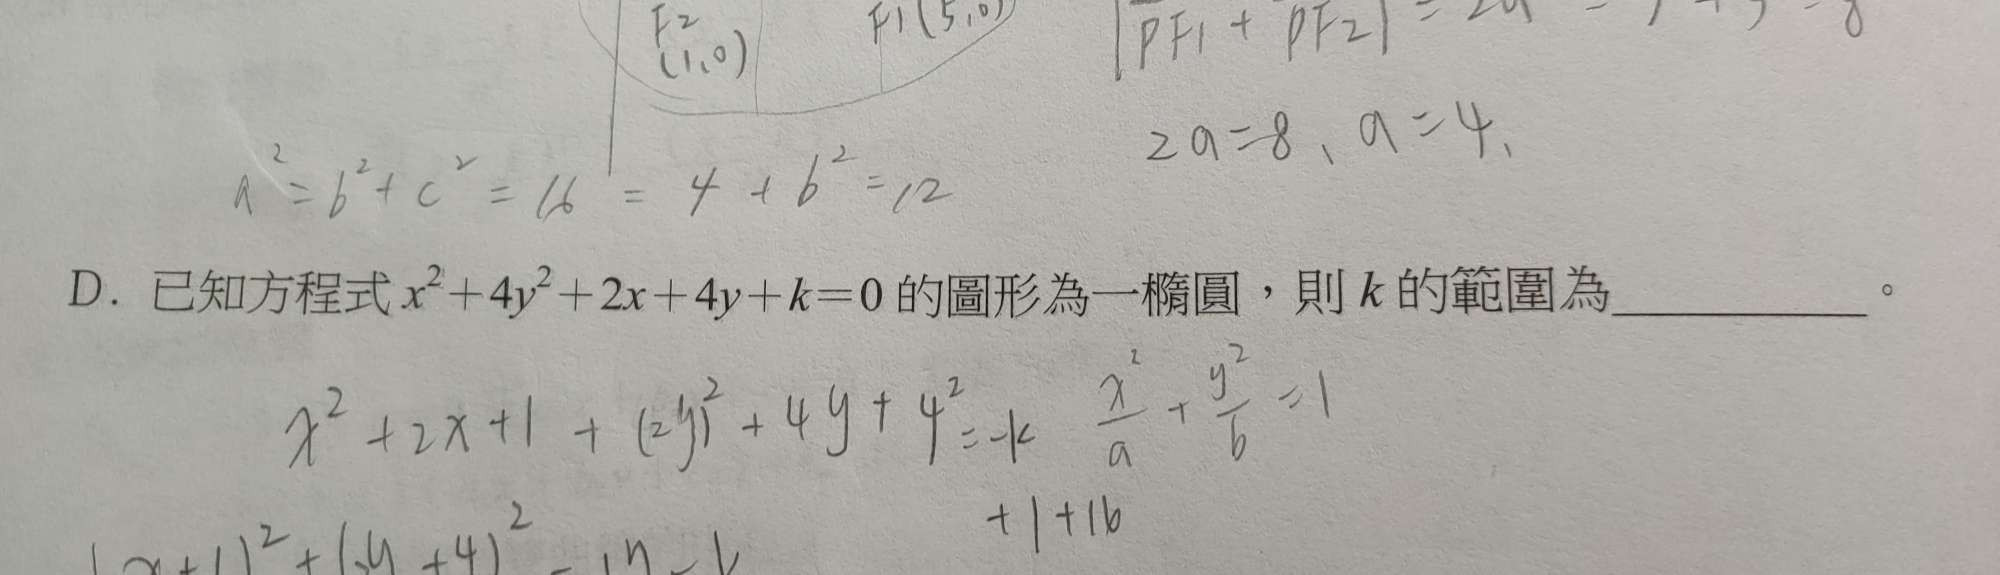 F2
(1,0)
F1(5,0)
|PF1 + PF2| = 2a
2a=8、a=4、
a²=b²+c²=16=4+b²=12
D. 已知方程式 x²+4y²+2x+4y+k=0 的圖形為一橢圓，則 k 的範圍為__________。
x²+2x+1+(2y)²+4y+4²=-k
+1+16
x²/a + y²/b = 1
(x+1)²+(2y+4)²=17-k